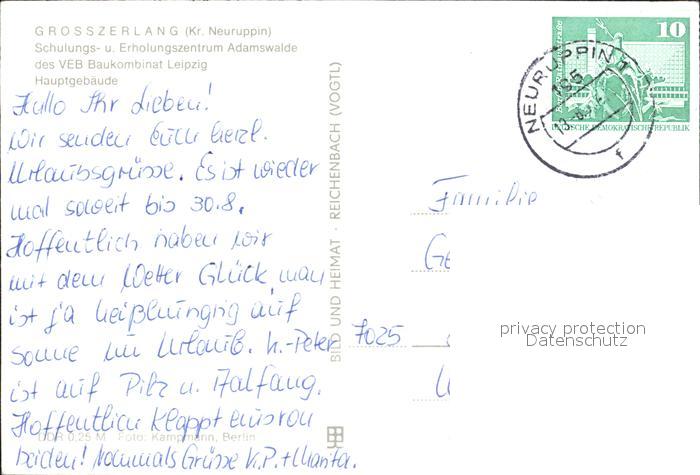 GROSSZERLANG (Kr. Neuruppin)
Schulungs- u. Erholungszentrum Adamswalde
des VEB Baukombinat Leipzig
Hauptgebäude
Hallo Ihr Lieben!
Wir senden Euch herzl.
Urlaubsgrüsse. Es ist wieder
mal soweit bis 30.8.
Hoffentlich haben wir
mit dem Wetter Glück, man
ist ja heißhungrig auf
Sonne im Urlaub. K.-Peter
ist auf Pilz u. Aalfang.
Hoffentlich klappt eins von
beiden! Nochmals Grüsse K.P. + Marita.
DDR 0,25 M Foto: Kampmann, Berlin
BILD UND HEIMAT · REICHENBACH (VOGTL)
10
DEUTSCHE DEMOKRATISCHE REPUBLIK
NEURUPPIN 1
195
f
Familie
Ge
7025
privacy protection
Datenschutz